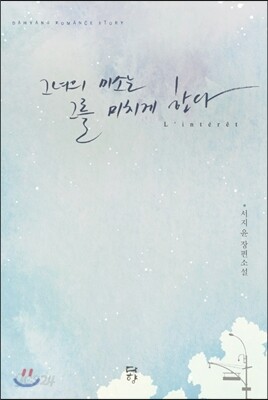 DAHYANG ROMANCE STORY
그녀의 미소는
그를 미치게 한다
L'intérêt
서지윤 장편소설
다향
yes24